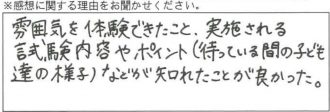 ※感想に関する理由をお聞かせください。
雰囲気を体験できたこと、実施される
試験内容やポイント(待っている間の子ども
達の様子)などが知れたことが良かった。